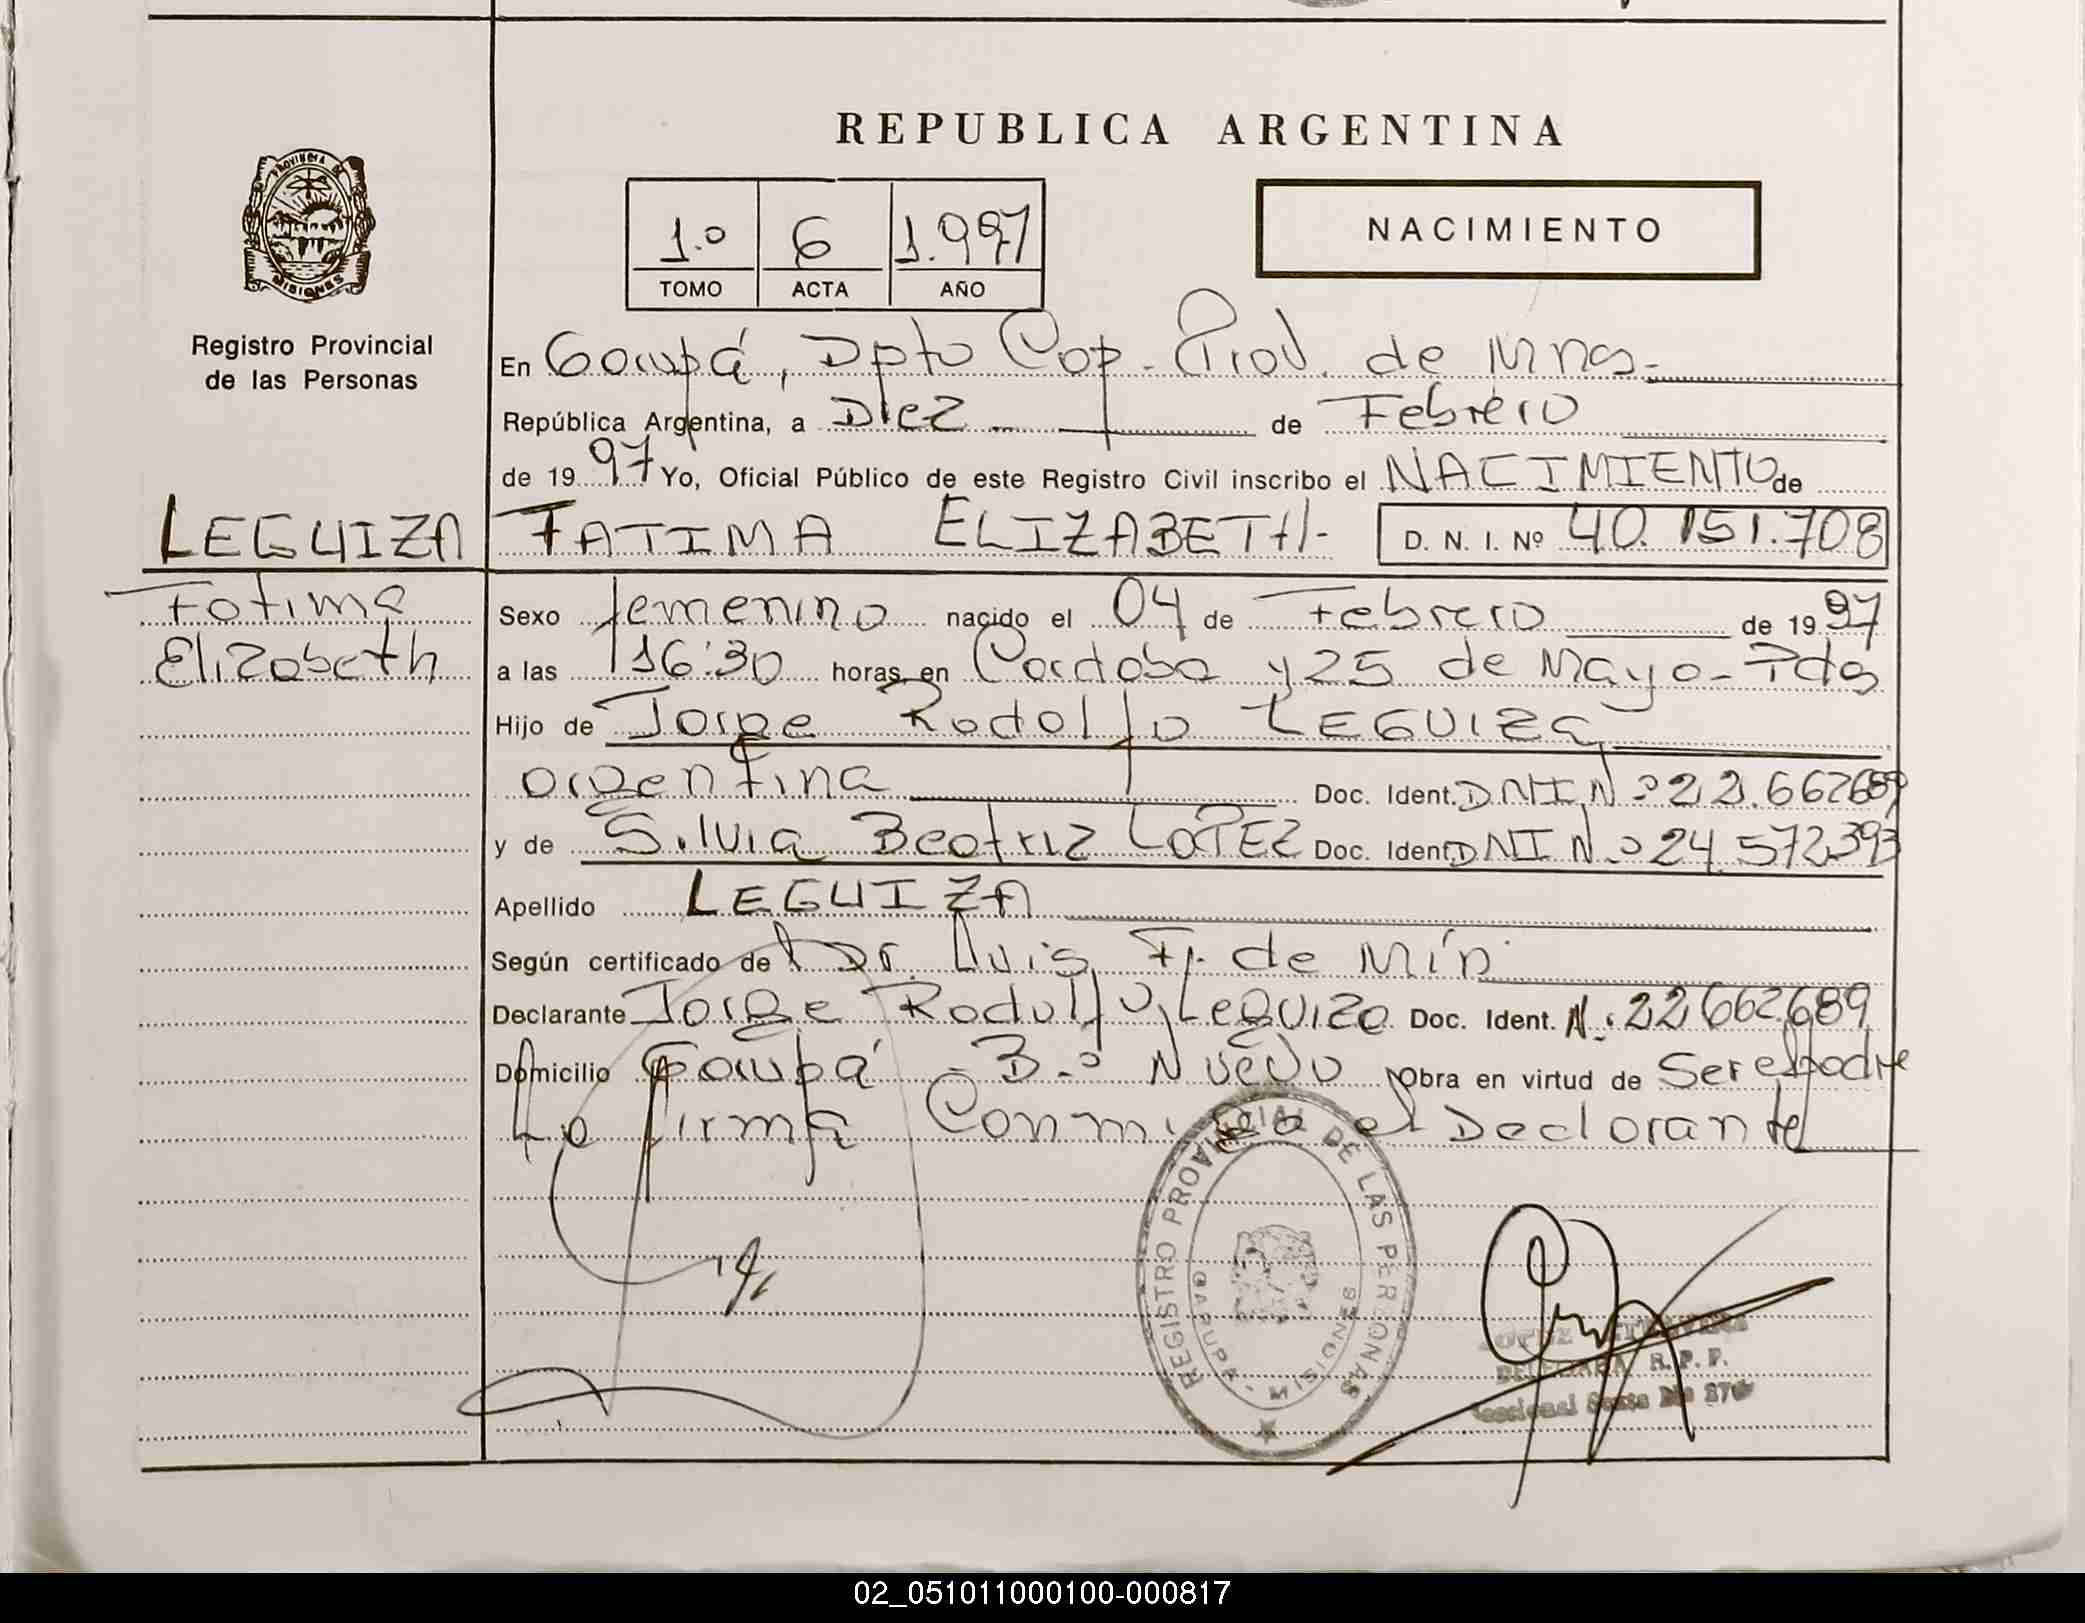 REPUBLICA ARGENTINA
PROVINCIA DE
MISIONES
1.º 6 1.997
TOMO ACTA AÑO
NACIMIENTO
Registro Provincial
de las Personas
En Garupá, Dpto Cap. Prov. de Mnes.
República Argentina, a Diez de Febrero
de 1997 Yo, Oficial Público de este Registro Civil inscribo el NACIMIENTO de
LEGUIZA FATIMA ELIZABETH- D. N. I. Nº 40.151.708
Fatima
Elizabeth
Sexo femenino nacido el 04 de Febrero de 1997
a las 16:30 horas en Cordoba y 25 de Mayo - Pdas
Hijo de Jorge Rodolfo LEGUIZA
argentina Doc. Ident. DNI Nº 22.662689
y de Silvia Beatriz LOPEZ Doc. Ident. DNI Nº 24.572.393
Apellido LEGUIZA
Según certificado de Dr. Luis F. de Mín
Declarante Jorge Rodolfo Leguiza Doc. Ident. N. 22662689
Domicilio Garupá - Bº Nuevo Obra en virtud de Ser el padre
La firma Conmigo el Declarante
REGISTRO PROVINCIAL DE LAS PERSONAS
GARUPA - MISIONES
DELEGADA R. P. P.
02_051011000100-000817